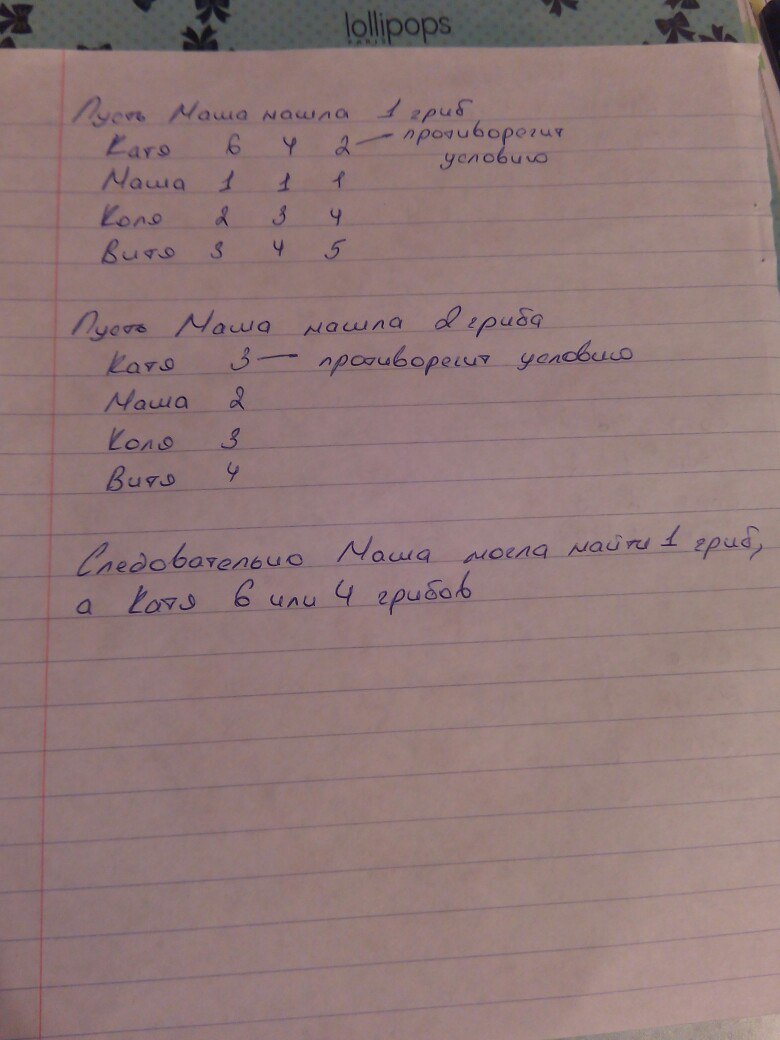 lollipops
PARIS
Пусть Маша нашла 1 гриб
Катя 6 4 2 — противоречит условию
Маша 1 1 1
Коля 2 3 4
Витя 3 4 5
Пусть Маша нашла 2 гриба
Катя 3 — противоречит условию
Маша 2
Коля 3
Витя 4
Следовательно Маша могла найти 1 гриб,
а Катя 6 или 4 грибов